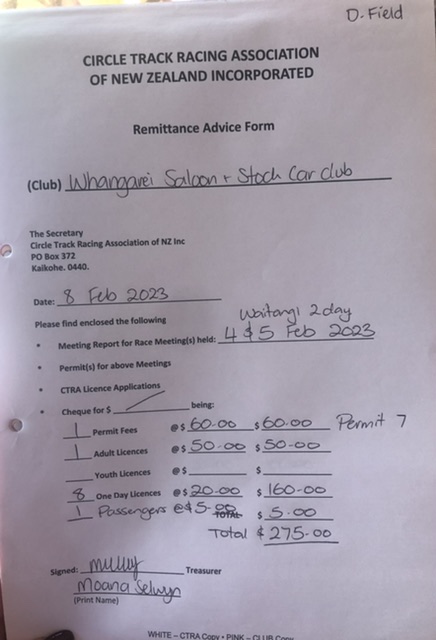 D. Field
CIRCLE TRACK RACING ASSOCIATION
OF NEW ZEALAND INCORPORATED
Remittance Advice Form
(Club) Whangarei Saloon + Stock Car club
The Secretary
Circle Track Racing Association of NZ Inc
PO Box 372
Kaikohe. 0440.
Date: 8 Feb 2023
Please find enclosed the following
Waitangi 2 day
• Meeting Report for Race Meeting(s) held: 4 & 5 Feb 2023
• Permit(s) for above Meetings
• CTRA Licence Applications
• Cheque for $ being:
1 Permit Fees @$ 60.00 $ 60.00 Permit 7
1 Adult Licences @$ 50.00 $ 50.00
Youth Licences @$ $
8 One Day Licences @$ 20.00 $ 160-00
1 Passengers @$5.00 TOTAL $ 5.00
Total $ 275.00
Signed: Treasurer
Moana Selwyn
(Print Name)
WHITE – CTRA Copy • PINK – CLUB Copy